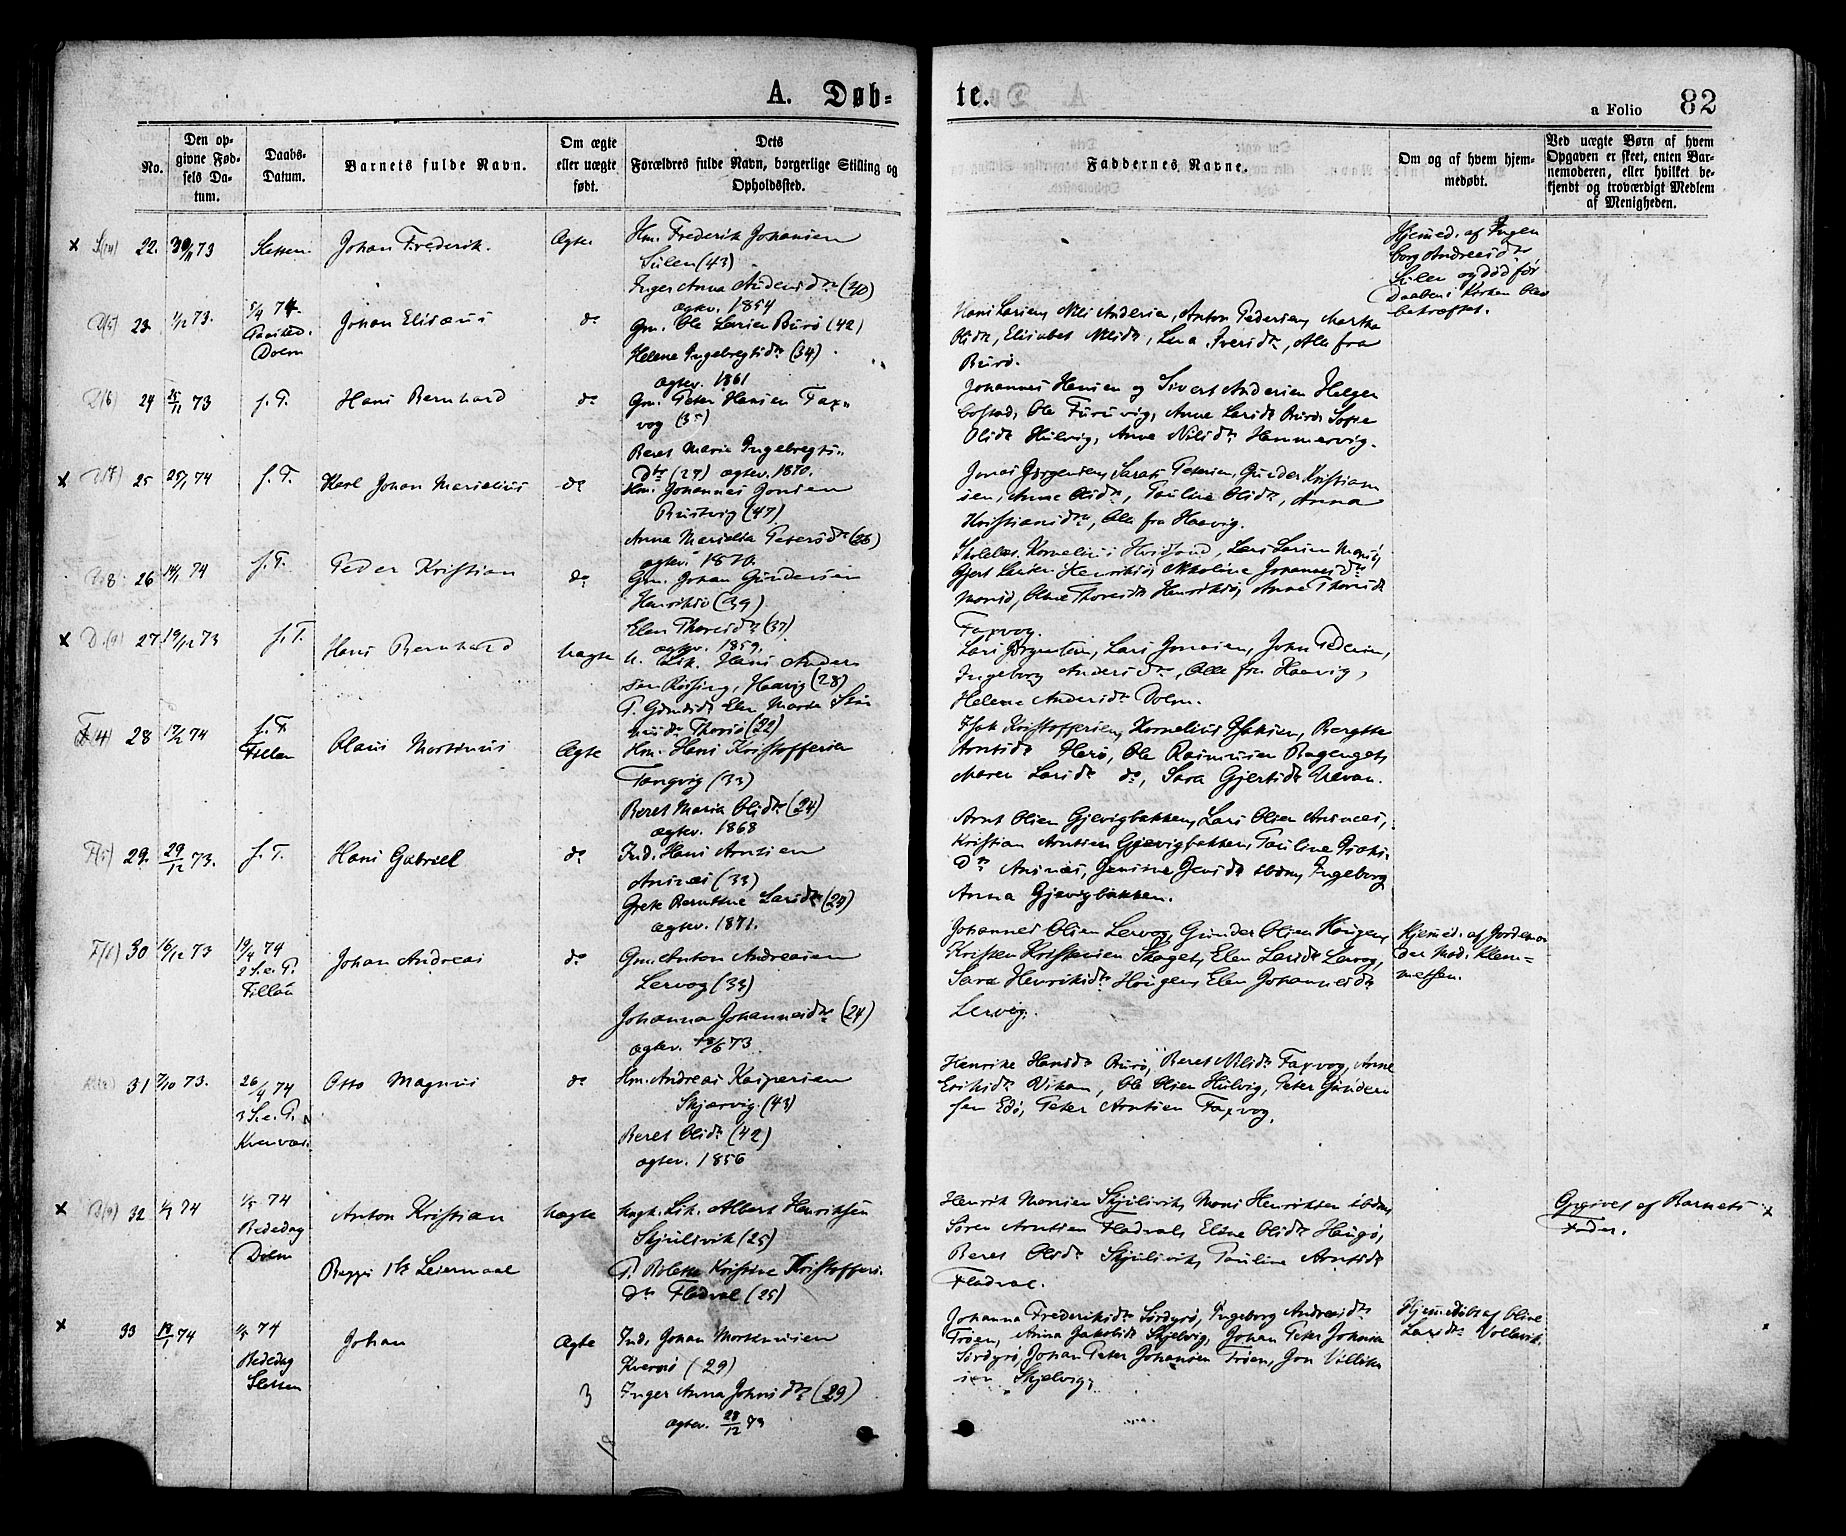 A. Døb-
te.
a Folio 82
No.
Den op-
givne Fød-
sels Da-
tum.
Daabs-
Datum.
Barnets fulde Navn.
Om ægte
eller uægte
født.
Dets
Forældres fulde Navn, borgerlige Stilling og
Opholdssted.
Faddernes Navne.
Om og af hvem hjem-
medøbt.
Ved uægte Børn af hvem
Opgaven er skeet, enten Bar-
nemoderen, eller hvilket be-
kjendt og troværdigt Medlem
af Menigheden.
22. 30/11 73 Sletten Johan Frederik. Ægte
Hm. Frederik Johansen
Sulen (43)
Inger Anna Andersdtr (40)
ægtev. 1854
Hjemed. af Ingeb
borg Andreasdtr
Sulen og død før
Daaben i Kirken blev
bekræftet.
23. 1/12 73. 5/4 74
Paasked.
Dolm
Johan Elisæus do
Gm. Ole Larsen Burø (42)
Helene Ingebregtsdtr (34)
ægtev. 1861
Hans Larsen, Nils Andersen, Anton Pedersen, Martha
Olsdtr, Elisabet Nilsdtr, Lena Iversdtr, Alle fra
Burø.
24 25/12 73 s. D. Hans Bernhard do
Gm. Peter Hansen Fax-
vog (35)
Beret Marie Ingebregts-
dtr (27) ægtev. 1870.
Johannes Hansen og Sivert Andersen Helger
bostad, Ole Furuvig, Anne Larsdtr Burø, Sofie
Olsdtr Hulvig, Anne Nilsdtr Hammervig.
25 25/1 74 s. D. Karl Johan Marselius do
Hm. Johannes Jonsen
Rustvig (47)
Anna Marselia Petersdtr (26)
ægtev. 1870.
Jonas Jørgensen, Sarah Petersen, Gunder Kristian
sen, Anne Olsdtr, Pauline Olsdtr, Anna
Kristiansdtr, Alle fra Haavig.
26 14/1 74 s. D. Peder Kristian do
Gm. Johan Gundersen
Henriksø (39)
Elen Thoresdtr (37)
ægtev. 1859.
Kornelius Hvidsand, Lars Larsen
Gjert Larsen Henriksø, Nikoline Johannesdtr
Mansø, Oline Thoresdtr Henriksø, Anne Thoresdtr
Faxvog.
27. 19/12 73 s. D. Hans Bernhard Uægte
U. Lik. Hans Ander
sen Røssing, Haavig (28)
P. Gaardsd. Elen Marta
Thorsø (22)
Lars Jørgensen, Lars Jonsen, John Pedersen,
Ingeborg Andersdtr, Alle fra Haavig,
Helene Andersdtr Dolm.
28 17/2 74 s. D.
Fillan
Olaus Martinus Ægte
Hm. Hans Kristoffersen
Tangvig (33)
Beret Maria Olsdtr (24)
ægtev. 1868
Isak Kristoffersen, Kornelius Isaksen, Bergitte
Arntsdtr Herø, Ole Rasmusen Bagenget,
Maren Larsdtr do, Sara Gjertsdtr Ulvan.
29. 29/12 73. s. D. Hans Gabriel do
Ind. Hans Arntsen
Ansnæs (33)
Grete Bernttine Larsdtr (24)
ægtev. 1871.
Arnt Olsen Gjevigbakken, Lars Olsen Ansnæs,
Kristian Arntsen Gjævigbakken, Pauline Isaks-
dtr Ansnæs, Jensine Jensdtr ibdm, Ingeborg
Anna Gjævigbakken.
30 16/12 73 19/4 74
2 S. e. P.
Fillan
Johan Andreas do
Gm. Anton Andreasen
Lervog (33)
Johanna Johannesdtr (24)
ægtev. /6 73
Johannes Olsen Lervog, Gunder Olsen Haugen,
Kristen Kristiansen Skaget, Elen Larsdtr Lervog,
Sara Henriksdtr Haugen, Elen Johannesdtr
Lervig.
Hjemed. af Jordemo
der Mad. Klem-
metsen.
31 7/10 73. 26/4 74
3 S. e. P.
Kvernæs
Otto Magnus do
Hm. Andreas Kaspersen
Skjærvig (43)
Beret Olsdtr (42)
ægtev. 1856
Henrike Hansdtr Burø, Beret Nilsdtr Faxvog, Anne
Eriksdtr Vikan, Ole Olsen Hulvig, Peter Gunder
sen Edø, Peter Arntsen Faxvog.
32 1/1 74 1/5 74
Bededag
Dolm
Anton Kristian Uægte
Begges 1ste Leiermaal
Ungk. Lik. Albert Henriksen
Skjulsvik (25)
P. Bolette Kristine Kristoffers-
dtr Fladval (25)
Henrik Monsen Skjulsvik, Mons Henriksen ibdm,
Søren Arntsen Fladval, Eline Olsdtr Haugø,
Beret Olsdtr Skjulsvik, Pauline Arntsdtr
Fladval.
Opgivet af Barnets
Fader.
33 18/1 74 1/5 74
Bededag
Sletten
Johan Ægte
Ind. Johan Mortensen
Kvernø (29)
3 Inger Anna Johnsdtr (29)
ægtev. 28/12 73
Johanna Frederiksdtr Sørdyrø, Ingeborg Andreasdtr
Frøen, Anna Jakobsdtr Skjelvig, Johan Peter Johnsen
Sørdyrø, Johan Peter Johansen Frøen, Jon Villik
sen Skjelvig.
Hjemedøbt af Oline
Larsdtr Vollevik.